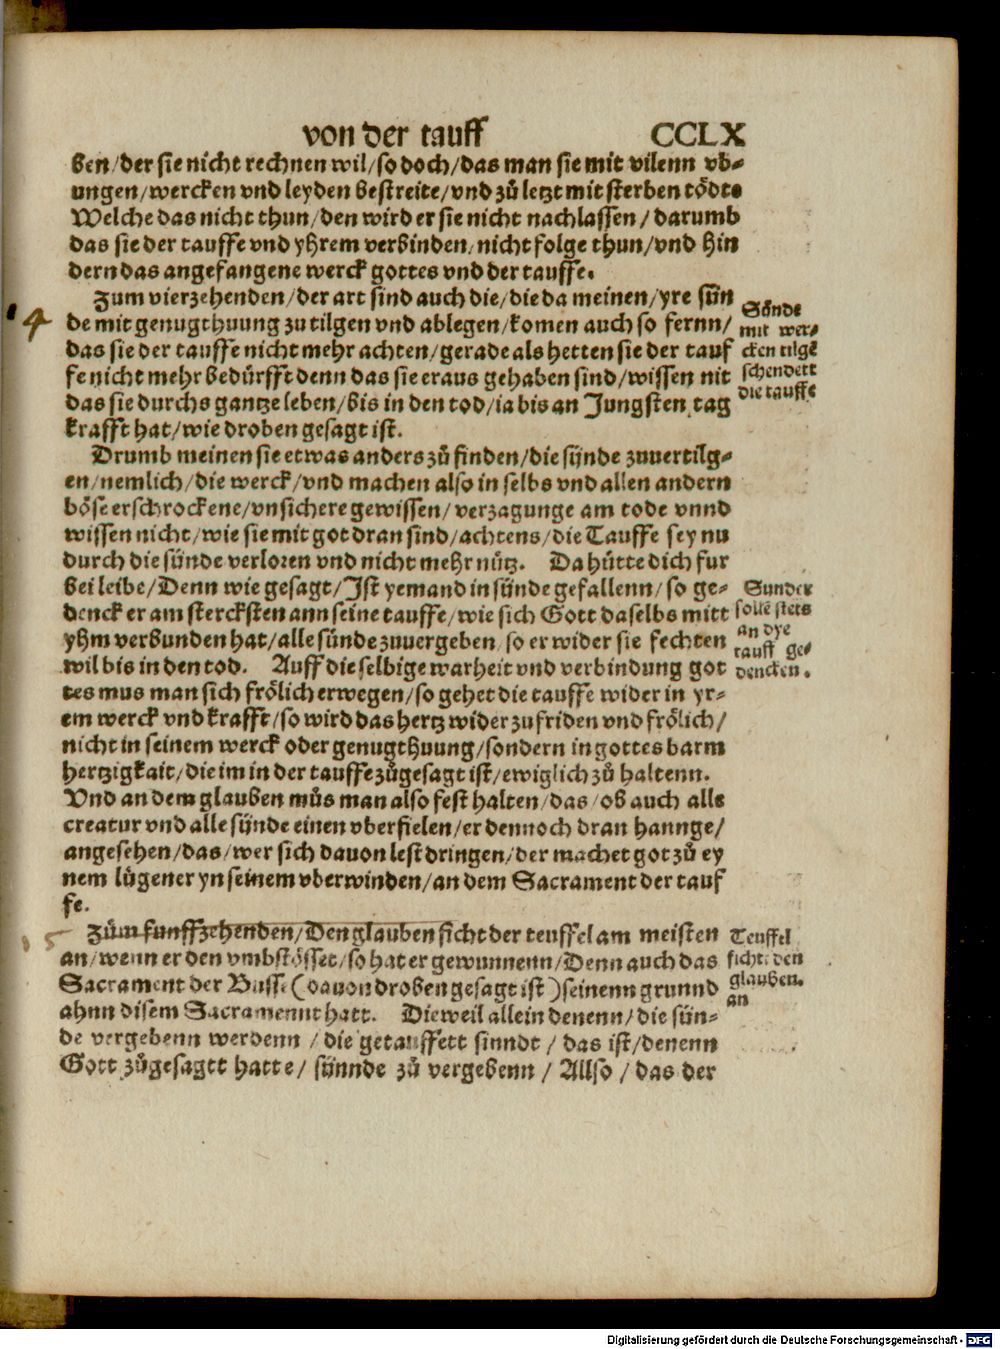 von der tauff CCLX
ben/der sie nicht rechnen wil/so doch/das man sie mit vilenn vb⸗
ungen/wercken vnd leyden bestreite/vnd zů letzt mit sterben tödte
Welche das nicht thun/den wird er sie nicht nachlassen/darumb
das sie der tauffe vnd yhrem verbinden/nicht folge thun/vnd hin
dern das angefangene werck gottes vnd der tauffe.
Zum vierzehenden/der art sind auch die/die da meinen/yre sün
de mit genugthuung zu tilgen vnd ablegen/komen auch so fernn/
das sie der tauffe nicht mehr achten/gerade als hetten sie der tauf
fe nicht mehr bedürfft denn das sie eraus gehaben sind/wissen nit
das sie durchs gantze leben/bis in den tod/ia bis an Jungsten tag
krafft hat/wie droben gesagt ist.
Sünde
mit wer⸗
cken tilgē
schendett
die tauffe
14
Drumb meinen sie etwas anders zů finden/die sünde zuuertilg⸗
en/nemlich/die werck/vnd machen also in selbs vnd allen andern
böse erschrockene/vnsichere gewissen/verzagunge am tode vnnd
wissen nicht/wie sie mit got dran sind/achtens/die Tauffe sey nu
durch die sünde verloren vnd nicht mehr nütz. Da hütte dich fur
bei leibe/Denn wie gesagt/Ist yemand in sünde gefallenn/so ge⸗
denck er am stercksten ann seine tauffe/wie sich Gott daselbs mitt
yhm verbunden hat/alle sünde zuuergeben/so er wider sie fechten
wil bis in den tod. Auff die selbige warheit vnd verbindung got
tes mus man sich frölich erwegen/so gehet die tauffe wider in yr⸗
em werck vnd krafft/so wird das hertz wider zu friden vnd frölich/
nicht in seinem werck oder genugthuung/sondern in gottes barm
hertzigkait/die im in der tauffe zůgesagt ist/ewiglich zů haltenn.
Vnd an dem glauben můs man also fest halten/das/ob auch alle
creatur vnd alle sünde einen vberfielen/er dennoch dran hannge/
angesehen/das/wer sich dauon lest dringen/der machet got zů ey
nem lügener yn seinem vberwinden/an dem Sacrament der tauf
fe.
Sunder
solle stets
an dye
tauff ge⸗
dencken.
Zům funffzehenden/Den glauben ficht der teuffel am meisten
an/wenn er den vmbstösset/so hat er gewunnenn/Denn auch das
Sacrament der Busse (dauon droben gesagt ist) seinenn grunnd
ahnn disem Sacramennt hatt. Dieweil allein denenn/die sün⸗
de vergebenn werdenn/die getauffett sinndt/das ist/denenn
Gott zůgesagtt hatte/sünnde zů vergebenn/Allso/das der
Teuffel
ficht den
glauben.
an
15
Digitalisierung gefördert durch die Deutsche Forschungsgemeinschaft - DFG